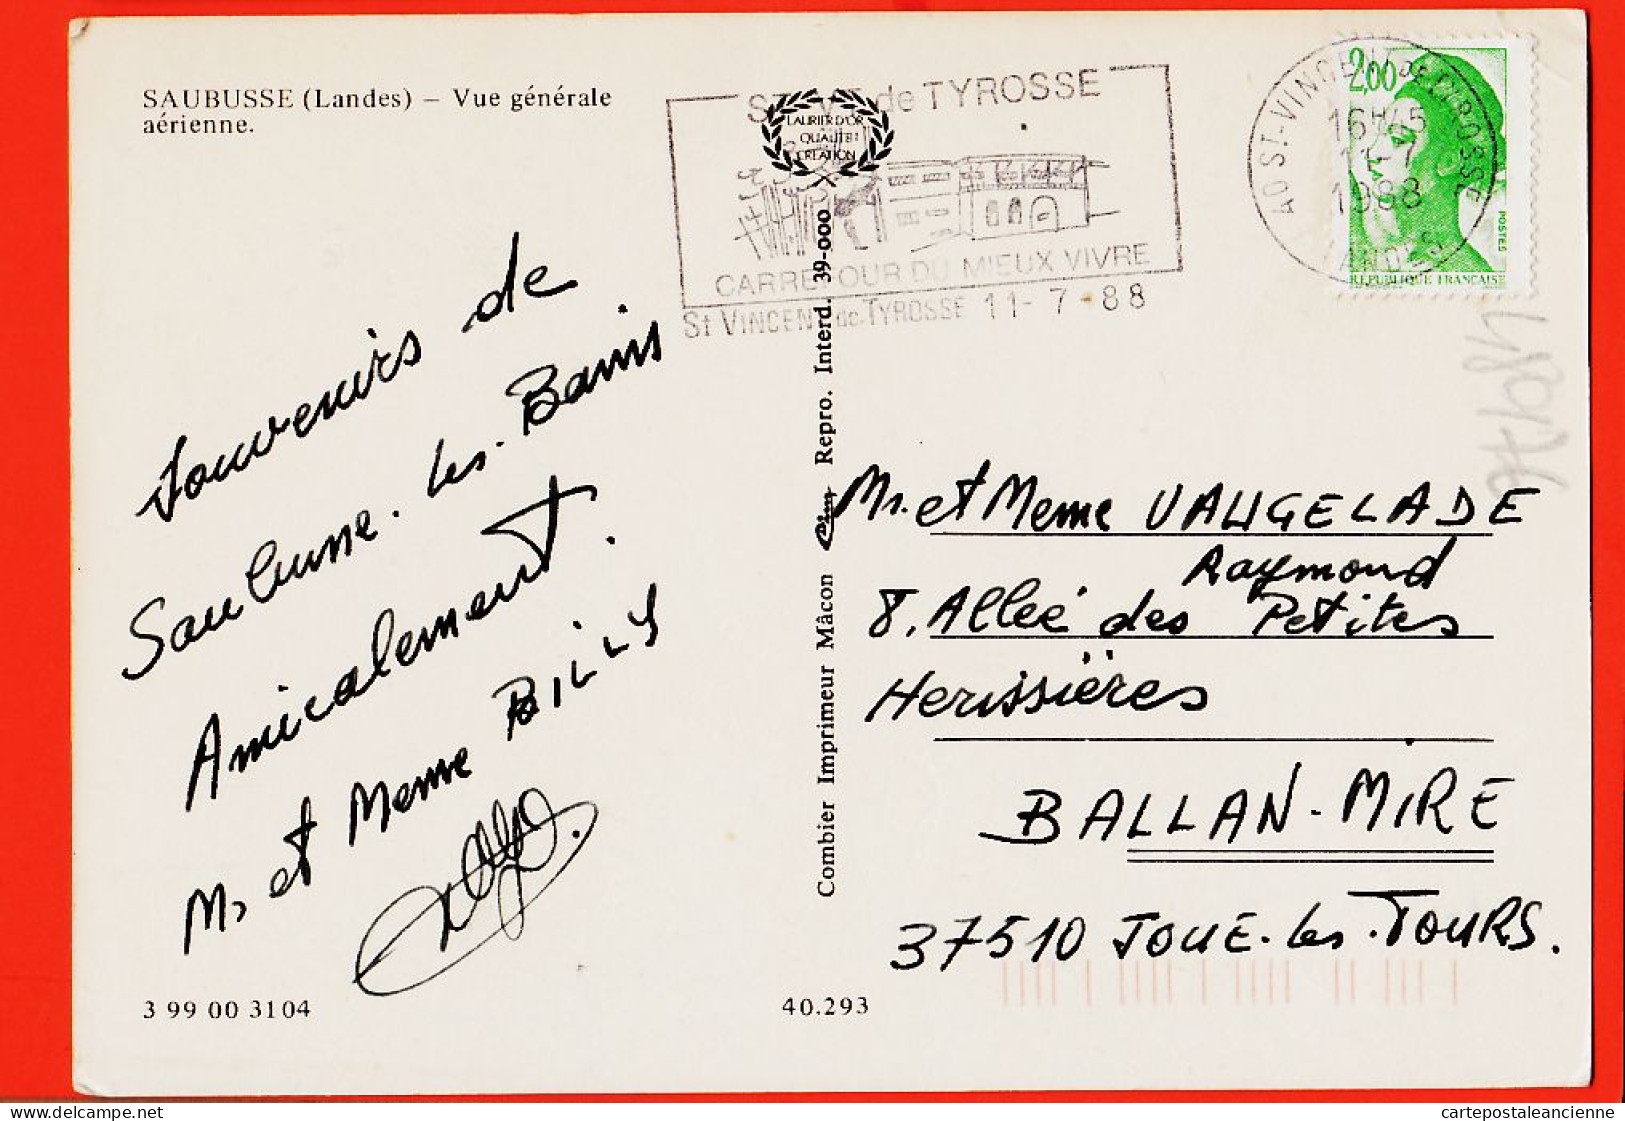 SAUBUSSE (Landes) – Vue générale
aérienne.
Souvenirs de
Saubusse-les-Bains
Amicalement.
Mr et Meme BILLY
3 99 00 3104
de TYROSSE
LAURIER D'OR
QUALITE
CREATION
CARREFOUR DU MIEUX VIVRE
St VINCENT de TYROSSE 11-7-88
40 ST-VINCENT DE TYROSSE
16H45
11-7
1988
LANDES
2,00
POSTES
REPUBLIQUE FRANÇAISE
Combier Imprimeur Mâcon Cim Repro. Interd. 39-000
Mr. et Meme VAUGELADE
Raymond
8, Allée des Petites
Herissières
BALLAN-MIRE
37510 JOUE-les-TOURS.
40.293
delcampe.net
cartepostaleancienne